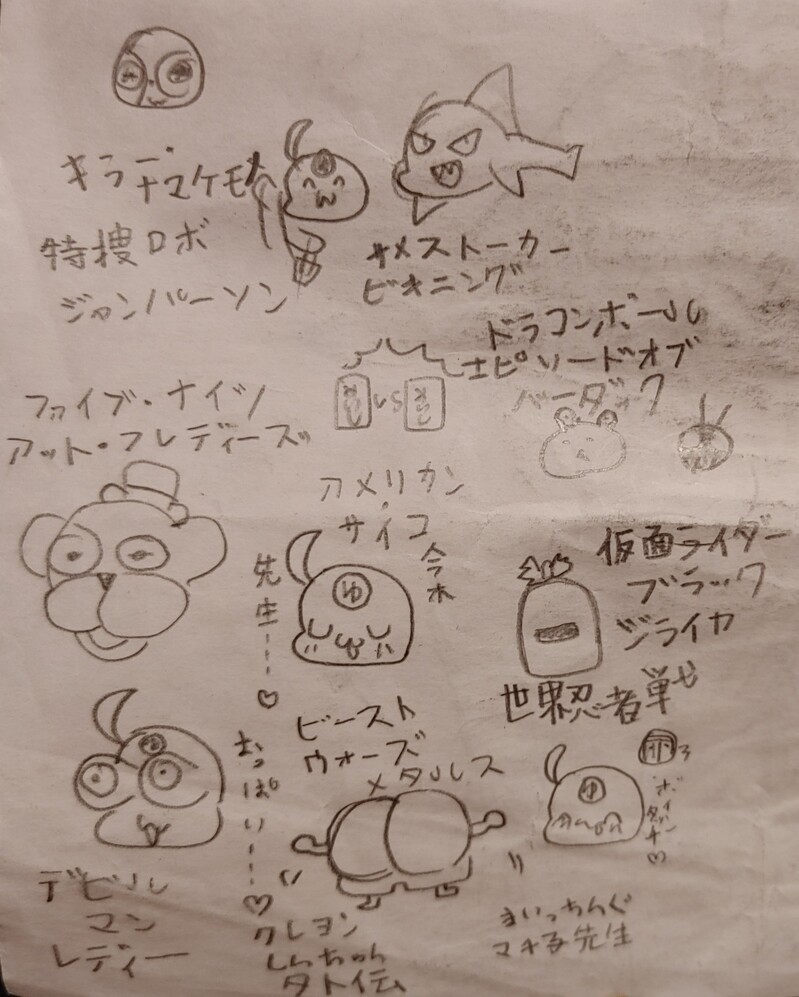 キラーナマケモノ
特捜ロボ
ジャンパーソン
サメストーカー
ビギニング
ドラゴンボール
エピソードオブ
バーダック
VS
ファイブ・ナイツ
アット・フレディーズ
アメリカン
・サイコ
今木
先生……♡
ゆ
仮面ライダー
ブラック
ジライヤ
世界忍者戦
ビースト
ウォーズ
メタルス
おっぱい……♡
ゆ
デビル
マン
レディー
クレヨン
しんちゃん
まいっちんぐ
マチ子先生